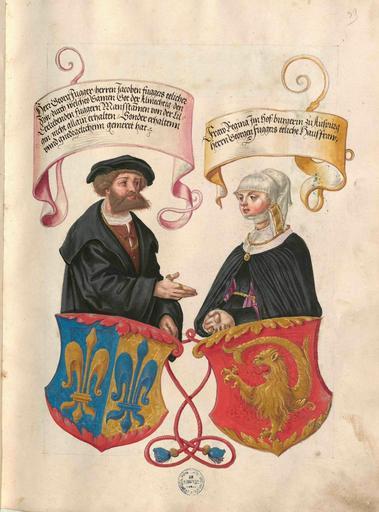 Herr Georg Fugger herren Jacoben fuggers eelicher
Son, durch welches Samen Got der Almechtig den
Mansstamen von der Lil-
gen, nicht allain erhalten, Sonder erhaltenn
vnnd gnedigelichenn gemeret hat.
Fraw Regina Im hof burgerin zu Augspurg
herrn Georgen fuggers eeliche Hausfraw.